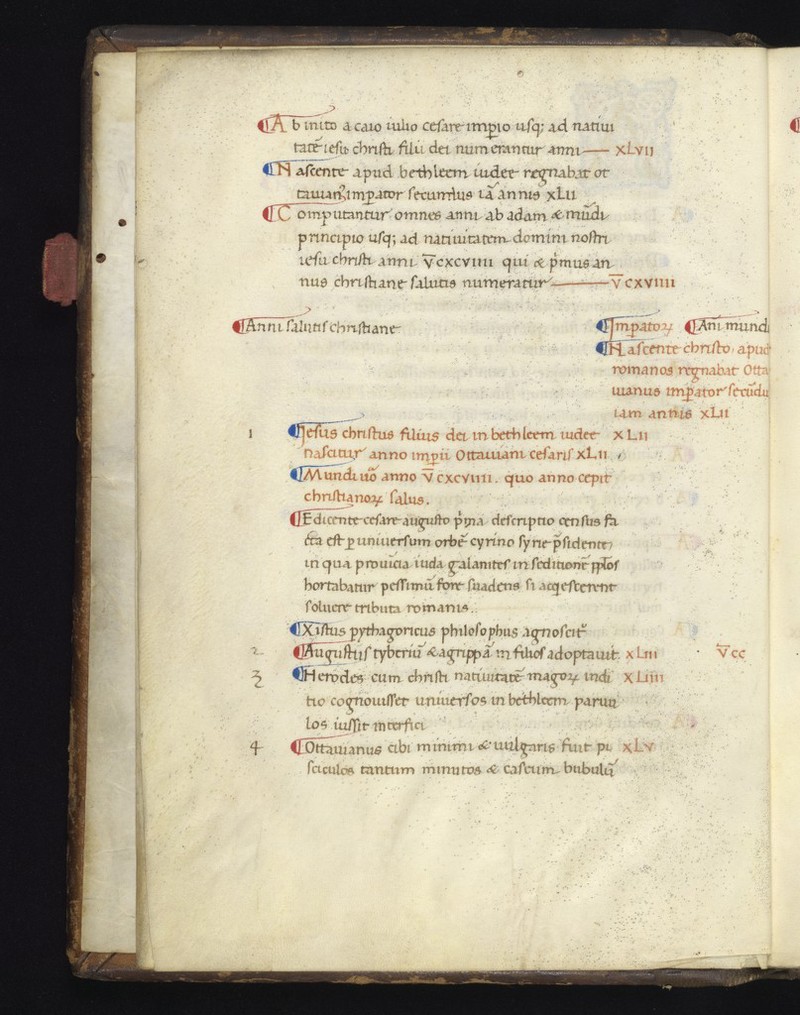 ¶A b inito a caio iulio cesare imꝑio usq; ad natiui
tatē iesu christi filii dei numerantur anni — XLVII
¶N ascente apud bethleem iudee regnabat ot
tauianꝰ imꝑator secundus iā annis XLII
¶C omputantur omnes anni ab adam & mūdi
principio usq; ad natiuitatem domini nostri
iesu christi anni V̅CXCVIIII qui & p̄mus an
nus christiane salutis numeratur — V̅CXVIIII
¶Anni salutis christiane ¶Impatoꝝ ¶Ani mundi
¶Nascente christo apud
romanos regnabat Otta
uianus imꝑator secūdu
iam annis XLII
1 ¶Iesus christus filius dei in bethleem iudee XLII
nascitur anno imꝑii Ottauiani cesaris XLII
¶Mundi uo anno V̅CXCVIIII. quo anno cepit
christianoꝝ salus.
¶Edicente cesare augusto p̄ma descriptio census fa
cta est ꝑ uniuersum orbē cyrino syrie p̄sidente
in qua prouīcia iuda galanites in seditionē pplos
hortabatur pessimū fore suadens si acqescerent
soluere tributa romanis.
¶Xistus pythagoricus philosophus agnoscit
2 ¶Augustus tyberiū & agrippā in filios adoptauit XLIII V̅CC
3 ¶Herodes cum christi natiuitatē magoꝝ indi XLIIII
tio cognouisset uniuersos in bethleem paruu
los iussit interfici
4 ¶Ottauianus cibi minimi & uulgaris fuit pi XLV
sciculos tantum minutos & caseum bubulū